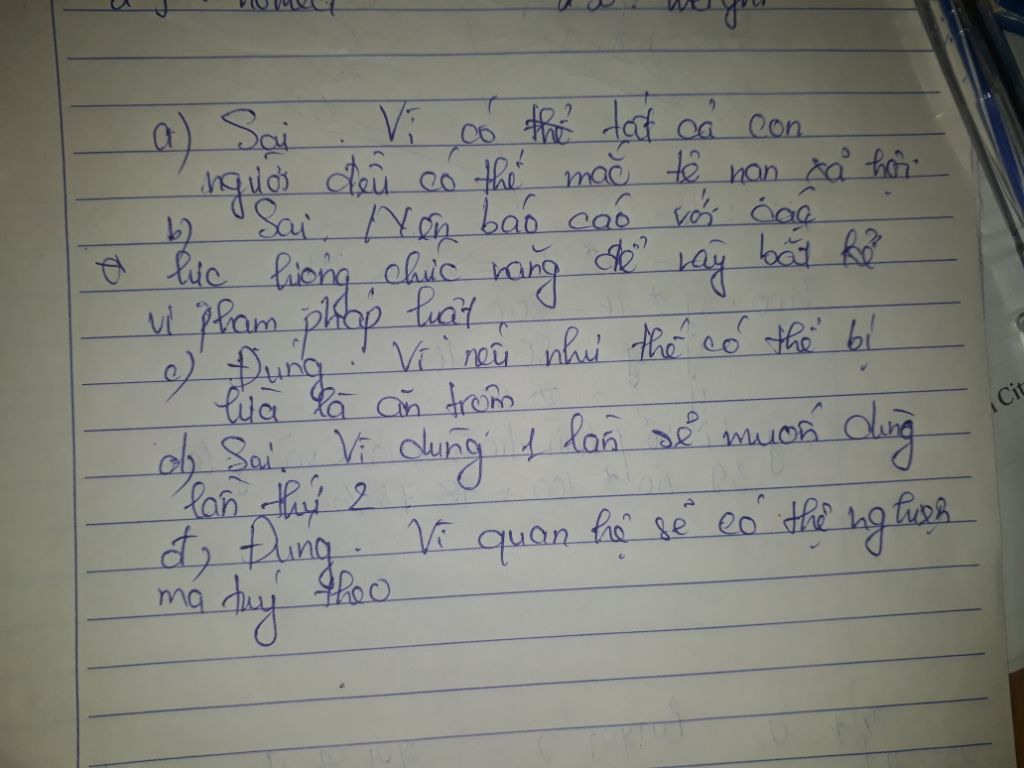 a) Sai. Vì có thể tất cả con
người đều có thể mắc tệ nạn xã hội.
b) Sai. Nên báo cáo với các
lực lượng chức năng để vây bắt kẻ
vi phạm pháp luật
c) Đúng. Vì nếu như thế có thể bị
lừa là ăn trộm
d) Sai. Vì dùng 1 lần sẽ muốn dùng
lần thứ 2
đ) Đúng. Vì quan hệ sẽ có thể nghiện
ma tuý theo